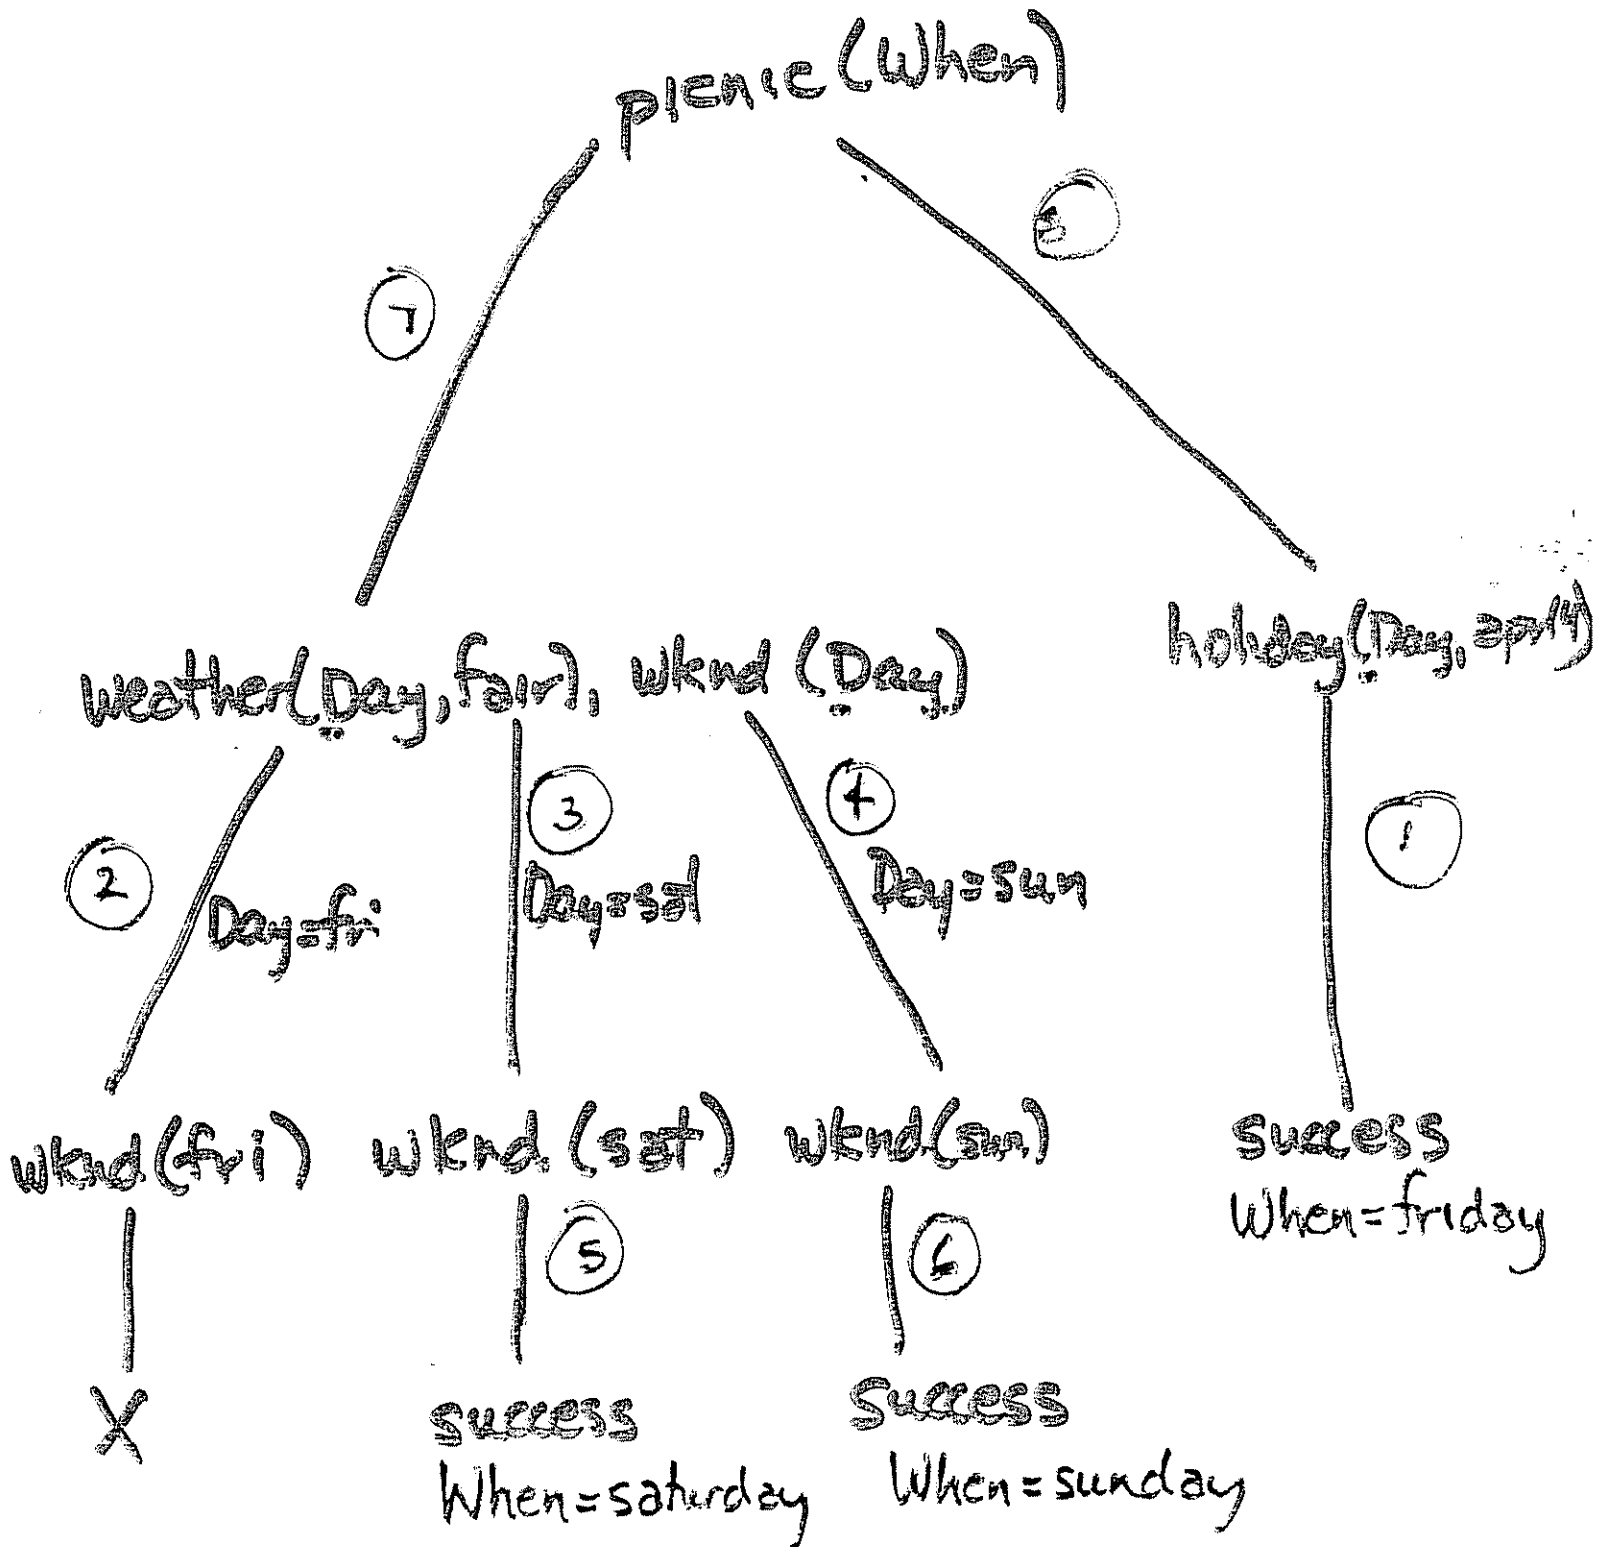 picnic (When)
7
weather(Day, fair), wknd (Day)
holiday(Day, april4)
2
3
4
1
Day=fri
Day=sat
Day=sun
wknd(fri)
wknd (sat)
wknd(sun)
success
When=friday
5
6
X
success
When=saturday
success
When=sunday